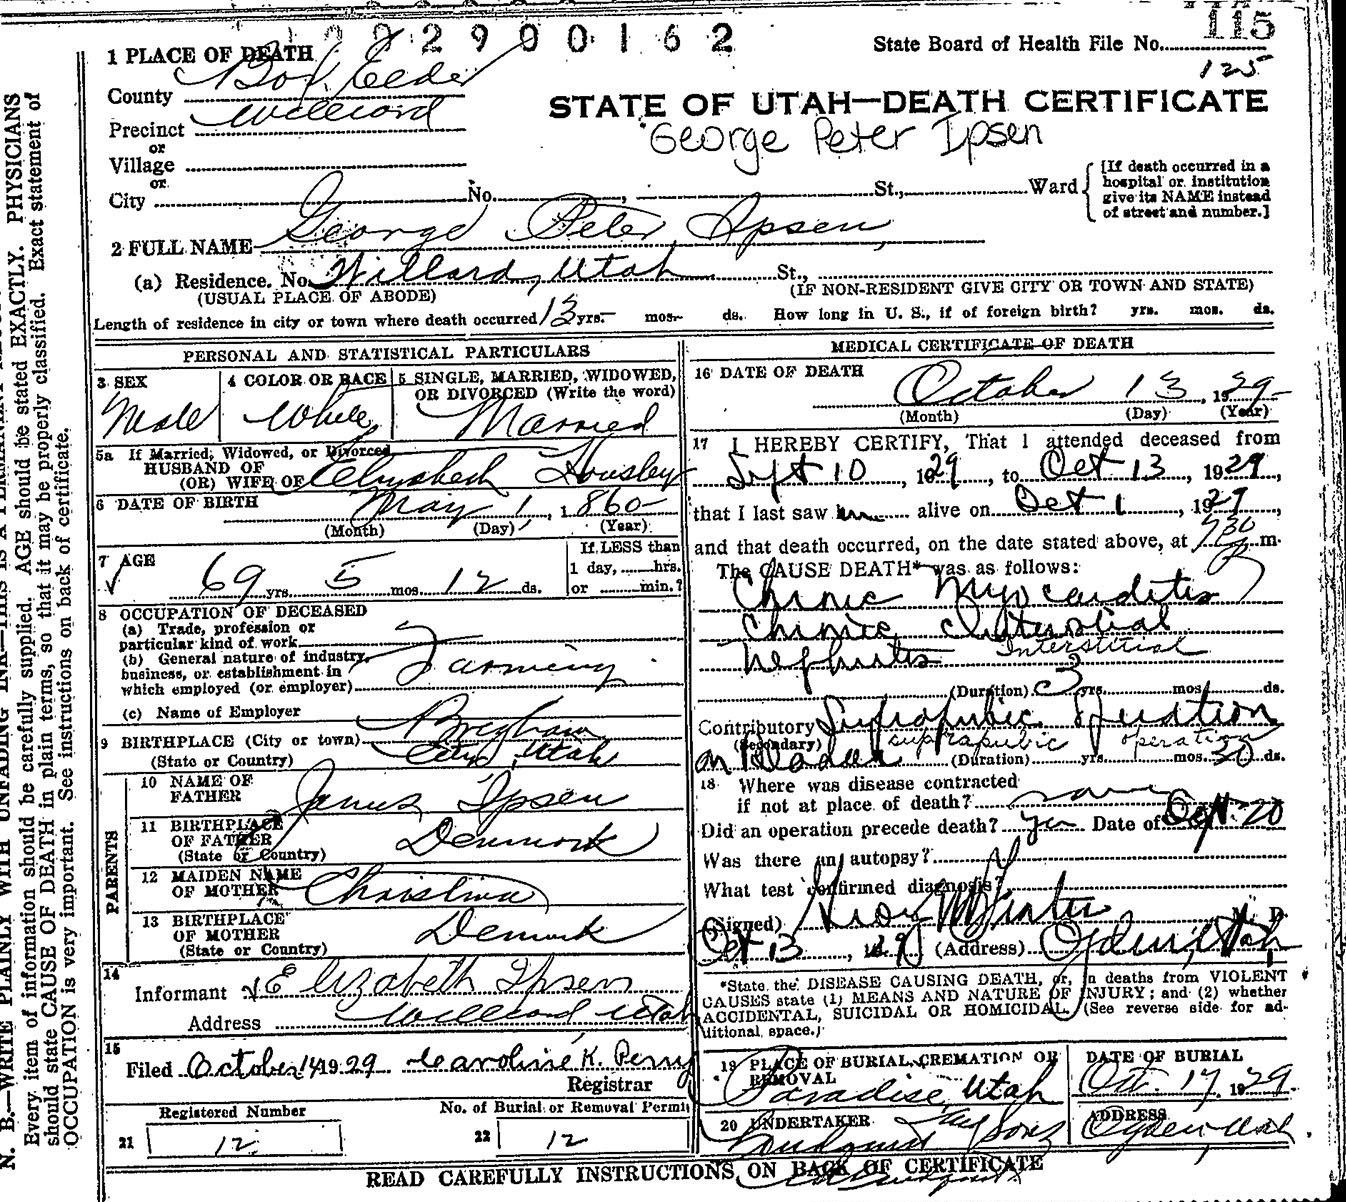 2 9 2 9 0 0 1 6 2
115
1 PLACE OF DEATH
State Board of Health File No.
125
County Box Elder
STATE OF UTAH—DEATH CERTIFICATE
Precinct Willard
George Peter Ipsen
or
Village
or
City No. , St., Ward
[If death occurred in a hospital or institution give its NAME instead of street and number.]
2 FULL NAME George Peter Ipsen
(a) Residence. No. Willard, Utah St.,
(USUAL PLACE OF ABODE)
(IF NON-RESIDENT GIVE CITY OR TOWN AND STATE)
Length of residence in city or town where death occurred 13 yrs. mos. ds. How long in U. S., if of foreign birth? yrs. mos. ds.
PERSONAL AND STATISTICAL PARTICULARS
3 SEX
Male
4 COLOR OR RACE
White
5 SINGLE, MARRIED, WIDOWED, OR DIVORCED (Write the word)
Married
5a If Married, Widowed, or Divorced
HUSBAND OF
(OR) WIFE OF Housley
6 DATE OF BIRTH May 1, 1860
(Month) (Day) (Year)
7 AGE
69 yrs 5 mos. 12 ds.
If LESS than
1 day, hrs.
or min.?
8 OCCUPATION OF DECEASED
(a) Trade, profession or
particular kind of work
(b) General nature of industry,
business, or establishment in
which employed (or employer)
Farming
(c) Name of Employer
9 BIRTHPLACE (City or town) Brigham
(State or Country) City, Utah
PARENTS
10 NAME OF
FATHER James Ipsen
11 BIRTHPLACE
OF FATHER Denmark
(State or Country)
12 MAIDEN NAME
OF MOTHER Christina
13 BIRTHPLACE
OF MOTHER Denmark
(State or Country)
14
Informant Elizabeth Ipsen
Address Willard Utah
15
Filed October 14 1929 Caroline K. Perry
Registrar
Registered Number
21 12
No. of Burial or Removal Permit
22 12
MEDICAL CERTIFICATE OF DEATH
16 DATE OF DEATH
October 13, 1929
(Month) (Day) (Year)
17 I HEREBY CERTIFY, That I attended deceased from
Sept 10, 1929, to Oct 13, 1929,
that I last saw him alive on Oct 1, 1929,
and that death occurred, on the date stated above, at 730 P m.
The CAUSE DEATH* was as follows:
Chronic Myocarditis
Chronic Interstitial
Nephritis Interstitial
(Duration) 3 yrs. mos. ds.
Contributory Suprapubic
(Secondary) suprapubic operation
on bladder (Duration) yrs. mos. 30 ds.
18 Where was disease contracted
if not at place of death?
Did an operation precede death? yes Date of Sept. 20
Was there an autopsy?
What test confirmed diagnosis?
(Signed) M. D.
Oct 13, 1929 (Address) Ogden, Utah
*State the DISEASE CAUSING DEATH, or, in deaths from VIOLENT
CAUSES state (1) MEANS AND NATURE OF INJURY; and (2) whether
ACCIDENTAL, SUICIDAL OR HOMICIDAL. (See reverse side for ad-
ditional space.)
19 PLACE OF BURIAL, CREMATION OR
REMOVAL
Paradise, Utah
DATE OF BURIAL
Oct. 17, 1929.
20 UNDERTAKER
& Sons
ADDRESS
Ogden, Utah.
READ CAREFULLY INSTRUCTIONS ON BACK OF CERTIFICATE
N. B.—WRITE PLAINLY WITH UNFADING INK—THIS IS A PERMANENT
Every item of information should be carefully supplied. AGE should be stated EXACTLY. PHYSICIANS
should state CAUSE OF DEATH in plain terms, so that it may be properly classified. Exact statement of
OCCUPATION is very important. See instructions on back of certificate.